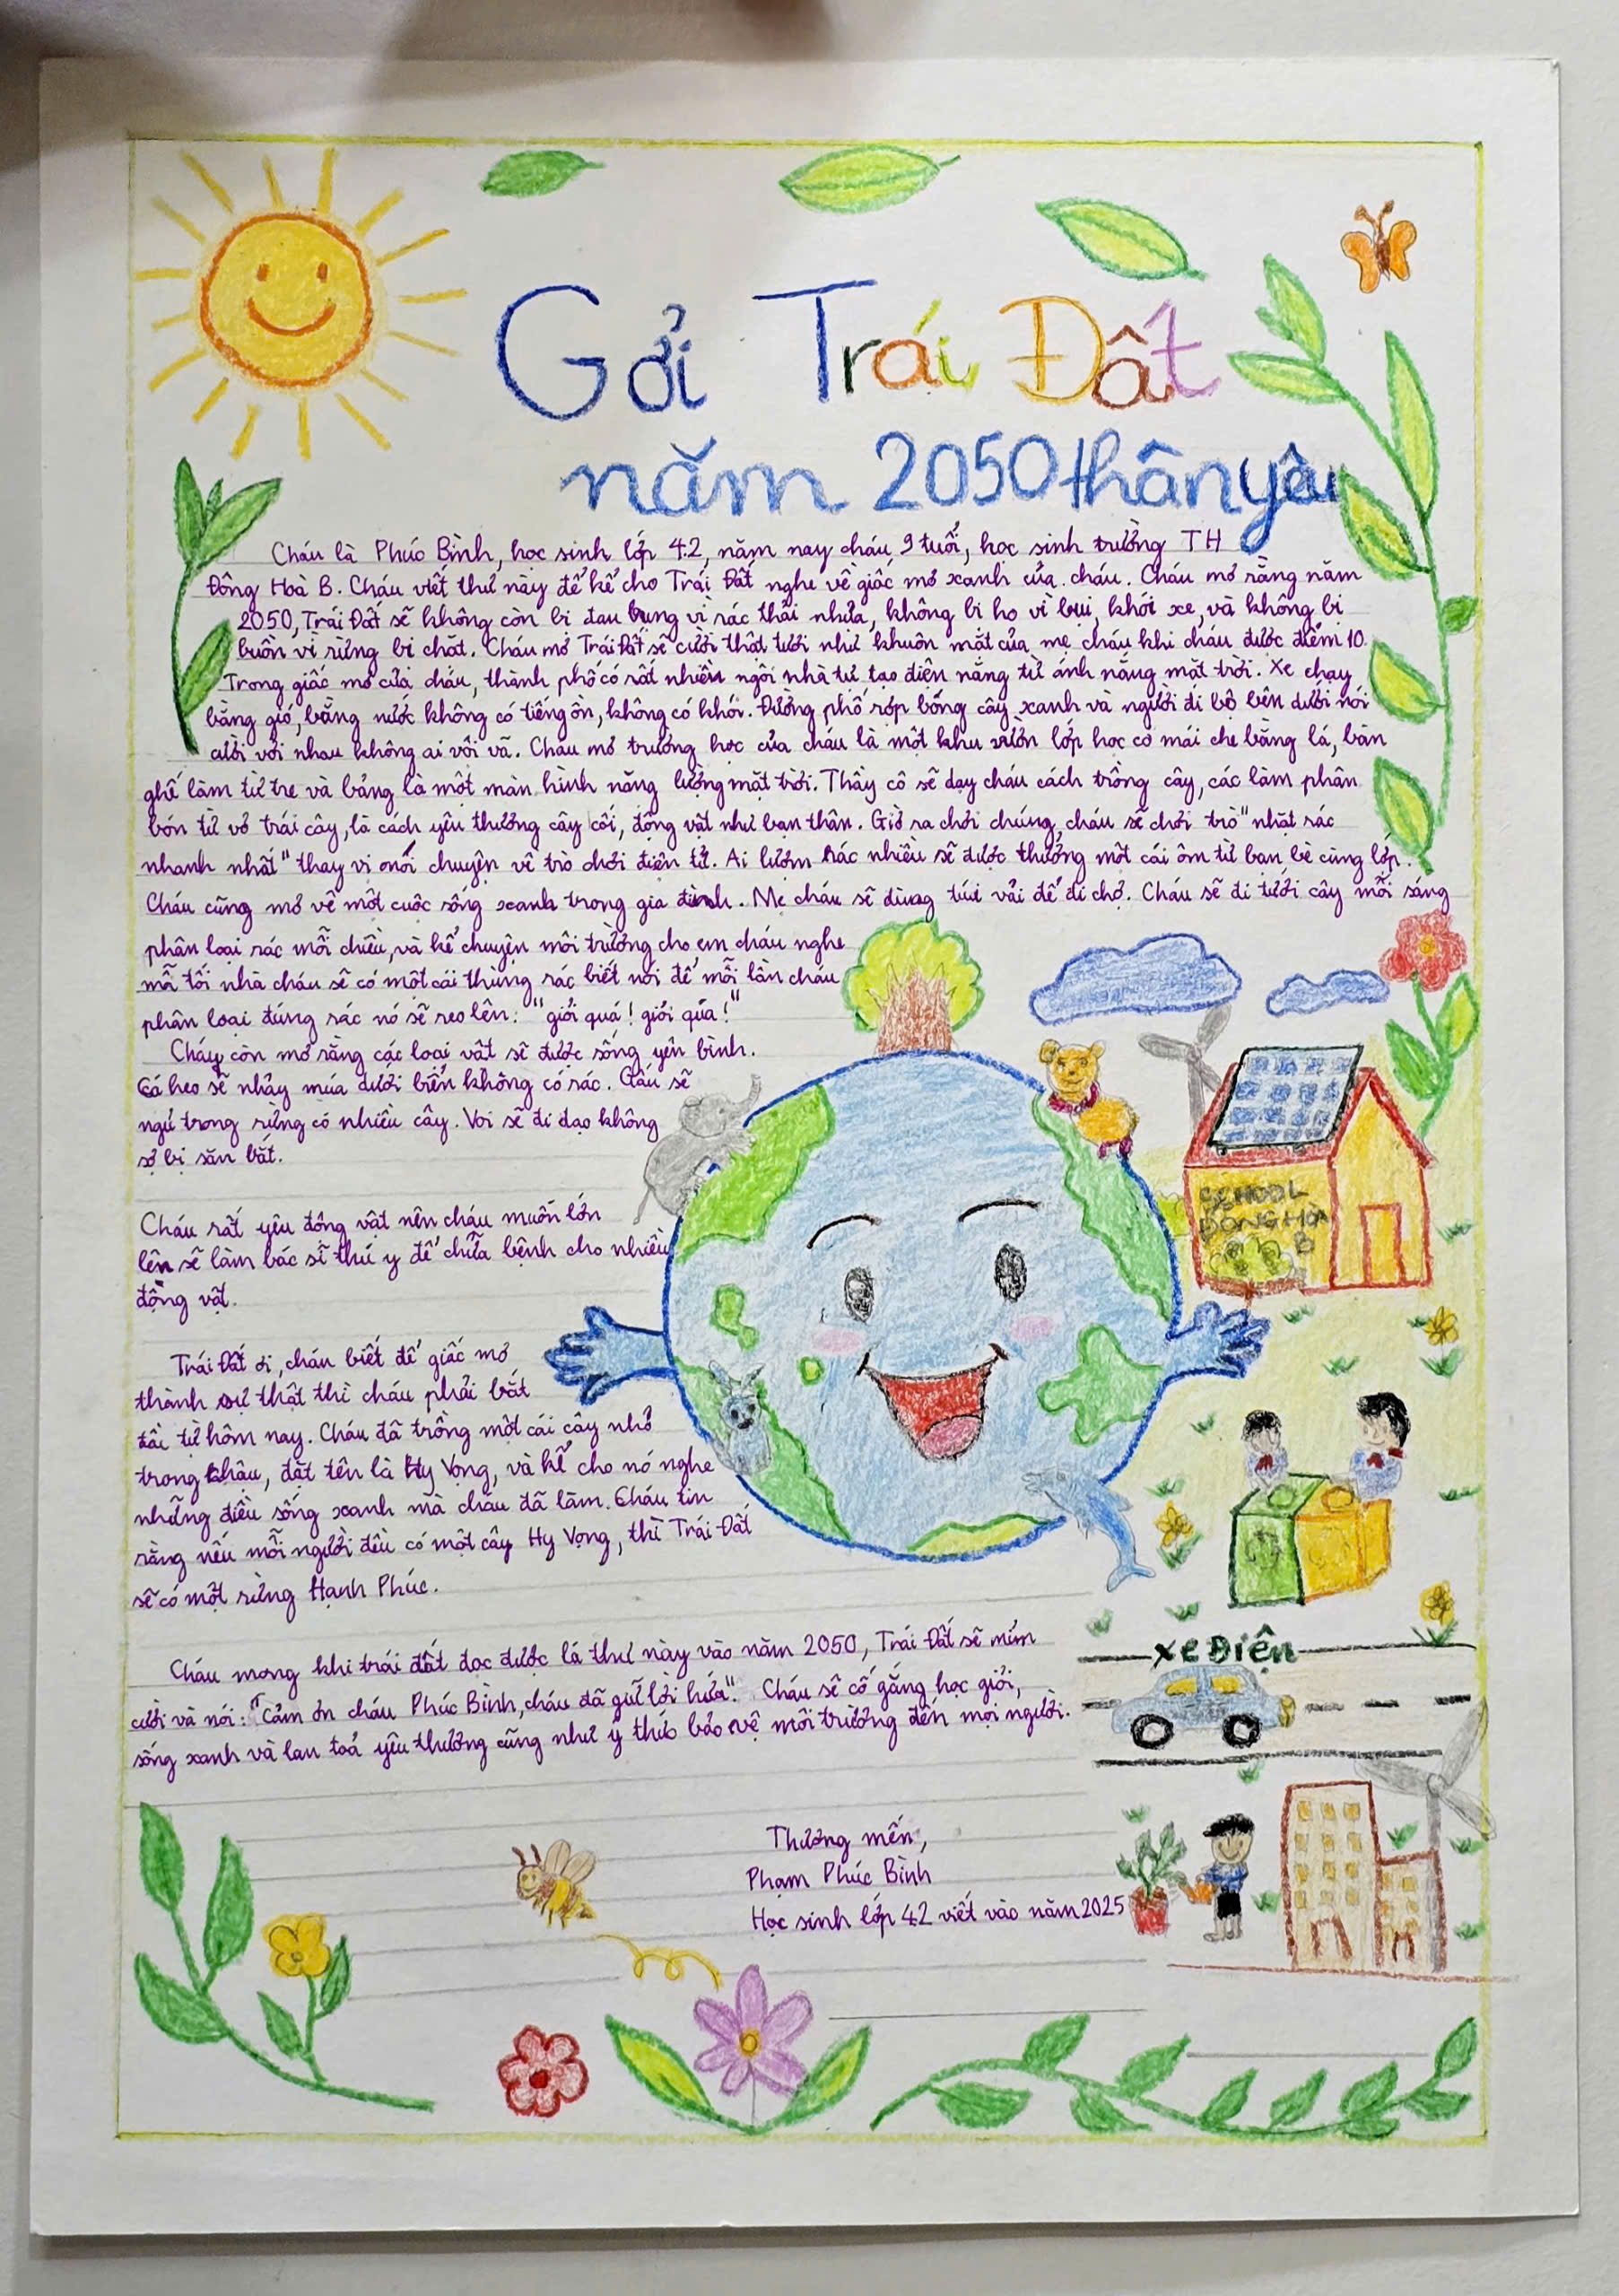 Gởi Trái Đất
năm 2050 thân yêu
Cháu là Phúc Bình, học sinh lớp 4.2, năm nay cháu 9 tuổi, học sinh trường TH
Đông Hoà B. Cháu viết thư này để kể cho Trái Đất nghe về giấc mơ xanh của cháu. Cháu mơ rằng năm
2050, Trái Đất sẽ không còn bị đau bụng vì rác thải nhựa, không bị ho vì bụi, khói xe, và không bị
buồn vì rừng bị chặt. Cháu mơ Trái Đất sẽ cười thật tươi như khuôn mặt của mẹ cháu khi cháu được điểm 10.
Trong giấc mơ của cháu, thành phố có rất nhiều ngôi nhà tự tạo điện năng từ ánh nắng mặt trời. Xe chạy
bằng gió, bằng nước không có tiếng ồn, không có khói. Đường phố rợp bóng cây xanh và người đi bộ bên dưới nói
cười với nhau không ai vội vã. Cháu mơ trường học của cháu là một khu vườn lớp học có mái che bằng lá, bàn
ghế làm từ tre và bảng là một màn hình năng lượng mặt trời. Thầy cô sẽ dạy cháu cách trồng cây, các làm phân
bón từ vỏ trái cây, là cách yêu thương cây cối, động vật như bạn thân. Giờ ra chơi chúng cháu sẽ chơi trò "nhặt rác
nhanh nhất" thay vì nói chuyện về trò chơi điện tử. Ai lượm rác nhiều sẽ được thưởng một cái ôm từ bạn bè cùng lớp.
Cháu cũng mơ về một cuộc sống xanh trong gia đình. Mẹ cháu sẽ dùng túi vải để đi chợ. Cháu sẽ đi tưới cây mỗi sáng
phân loại rác mỗi chiều, và kể chuyện môi trường cho em cháu nghe
mỗ tối nhà cháu sẽ có một cái thùng rác biết nói để mỗi lần cháu
phân loại đúng rác nó sẽ reo lên: "giỏi quá! giỏi qúa!"
Cháu còn mơ rằng các loại vật sẽ được sống yên bình.
Cá heo sẽ nhảy múa dưới biển không có rác. Gấu sẽ
ngủ trong rừng có nhiều cây. Voi sẽ đi dạo không
sợ bị săn bắt.
Cháu rất yêu động vật nên cháu muốn lớn
lên sẽ làm bác sĩ thú y để chữa bệnh cho nhiều
động vật.
Trái Đất ơi, cháu biết để giấc mơ
thành sự thật thì cháu phải bắt
đầu từ hôm nay. Cháu đã trồng một cái cây nhỏ
trong chậu, đặt tên là Hy Vọng, và kể cho nó nghe
những điều sống xanh mà cháu đã làm. Cháu tin
rằng nếu mỗi người đều có một cây Hy Vọng, thì Trái Đất
sẽ có một rừng Hạnh Phúc.
Cháu mong khi trái đất đọc được lá thư này vào năm 2050, Trái Đất sẽ mỉm
cười và nói: "Cảm ơn cháu Phúc Bình, cháu đã giữ lời hứa". Cháu sẽ cố gắng học giỏi,
sống xanh và lan toả yêu thương cũng như ý thức bảo vệ môi trường đến mọi người.
Thương mến,
Phạm Phúc Bình
Học sinh lớp 4.2 viết vào năm 2025
SCHOOL
DONG HOA
B
Xe Điện